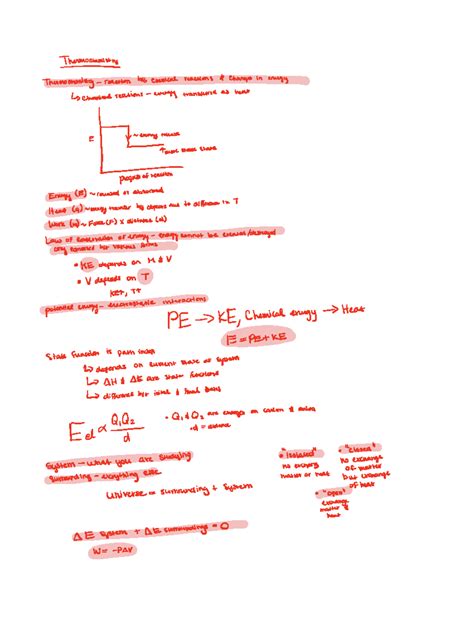 Thermochemistry
Thermochemistry - relation btw chemical reactions & changes in energy
↳ chemical reactions - energy transferred as heat
E
~ energy release
↑ most stable state
progress of reaction
Energy (E) ~ released or absorbed
Heat (q) ~ energy transfer btw objects due to difference in T
Work (w) ~ Force (F) x distance (d)
Law of conservation of energy - energy cannot be created/destroyed
only converted btw various forms
• KE depends on M & V
• V depends on T
KE↑, T↑
potential energy - electrostatic interactions
PE → KE, Chemical energy → Heat
E = PE + KE
State Function is path indep
↳ depends on current state of system
↳ ΔH & ΔE are state functions
↳ difference btw initial & final
Eel ∝ Q1Q2/d
• Q1 & Q2 are charges on cation & anion
• d = distance
System - what you are studying
Surrounding - everything else
Universe = surrounding + system
• "isolated"
no exchange
matter or heat
• "closed"
no exchange
of matter
but exchange
of heat
• "open"
exchange
matter &
heat
ΔE system + ΔE surroundings = 0
W = -PΔV